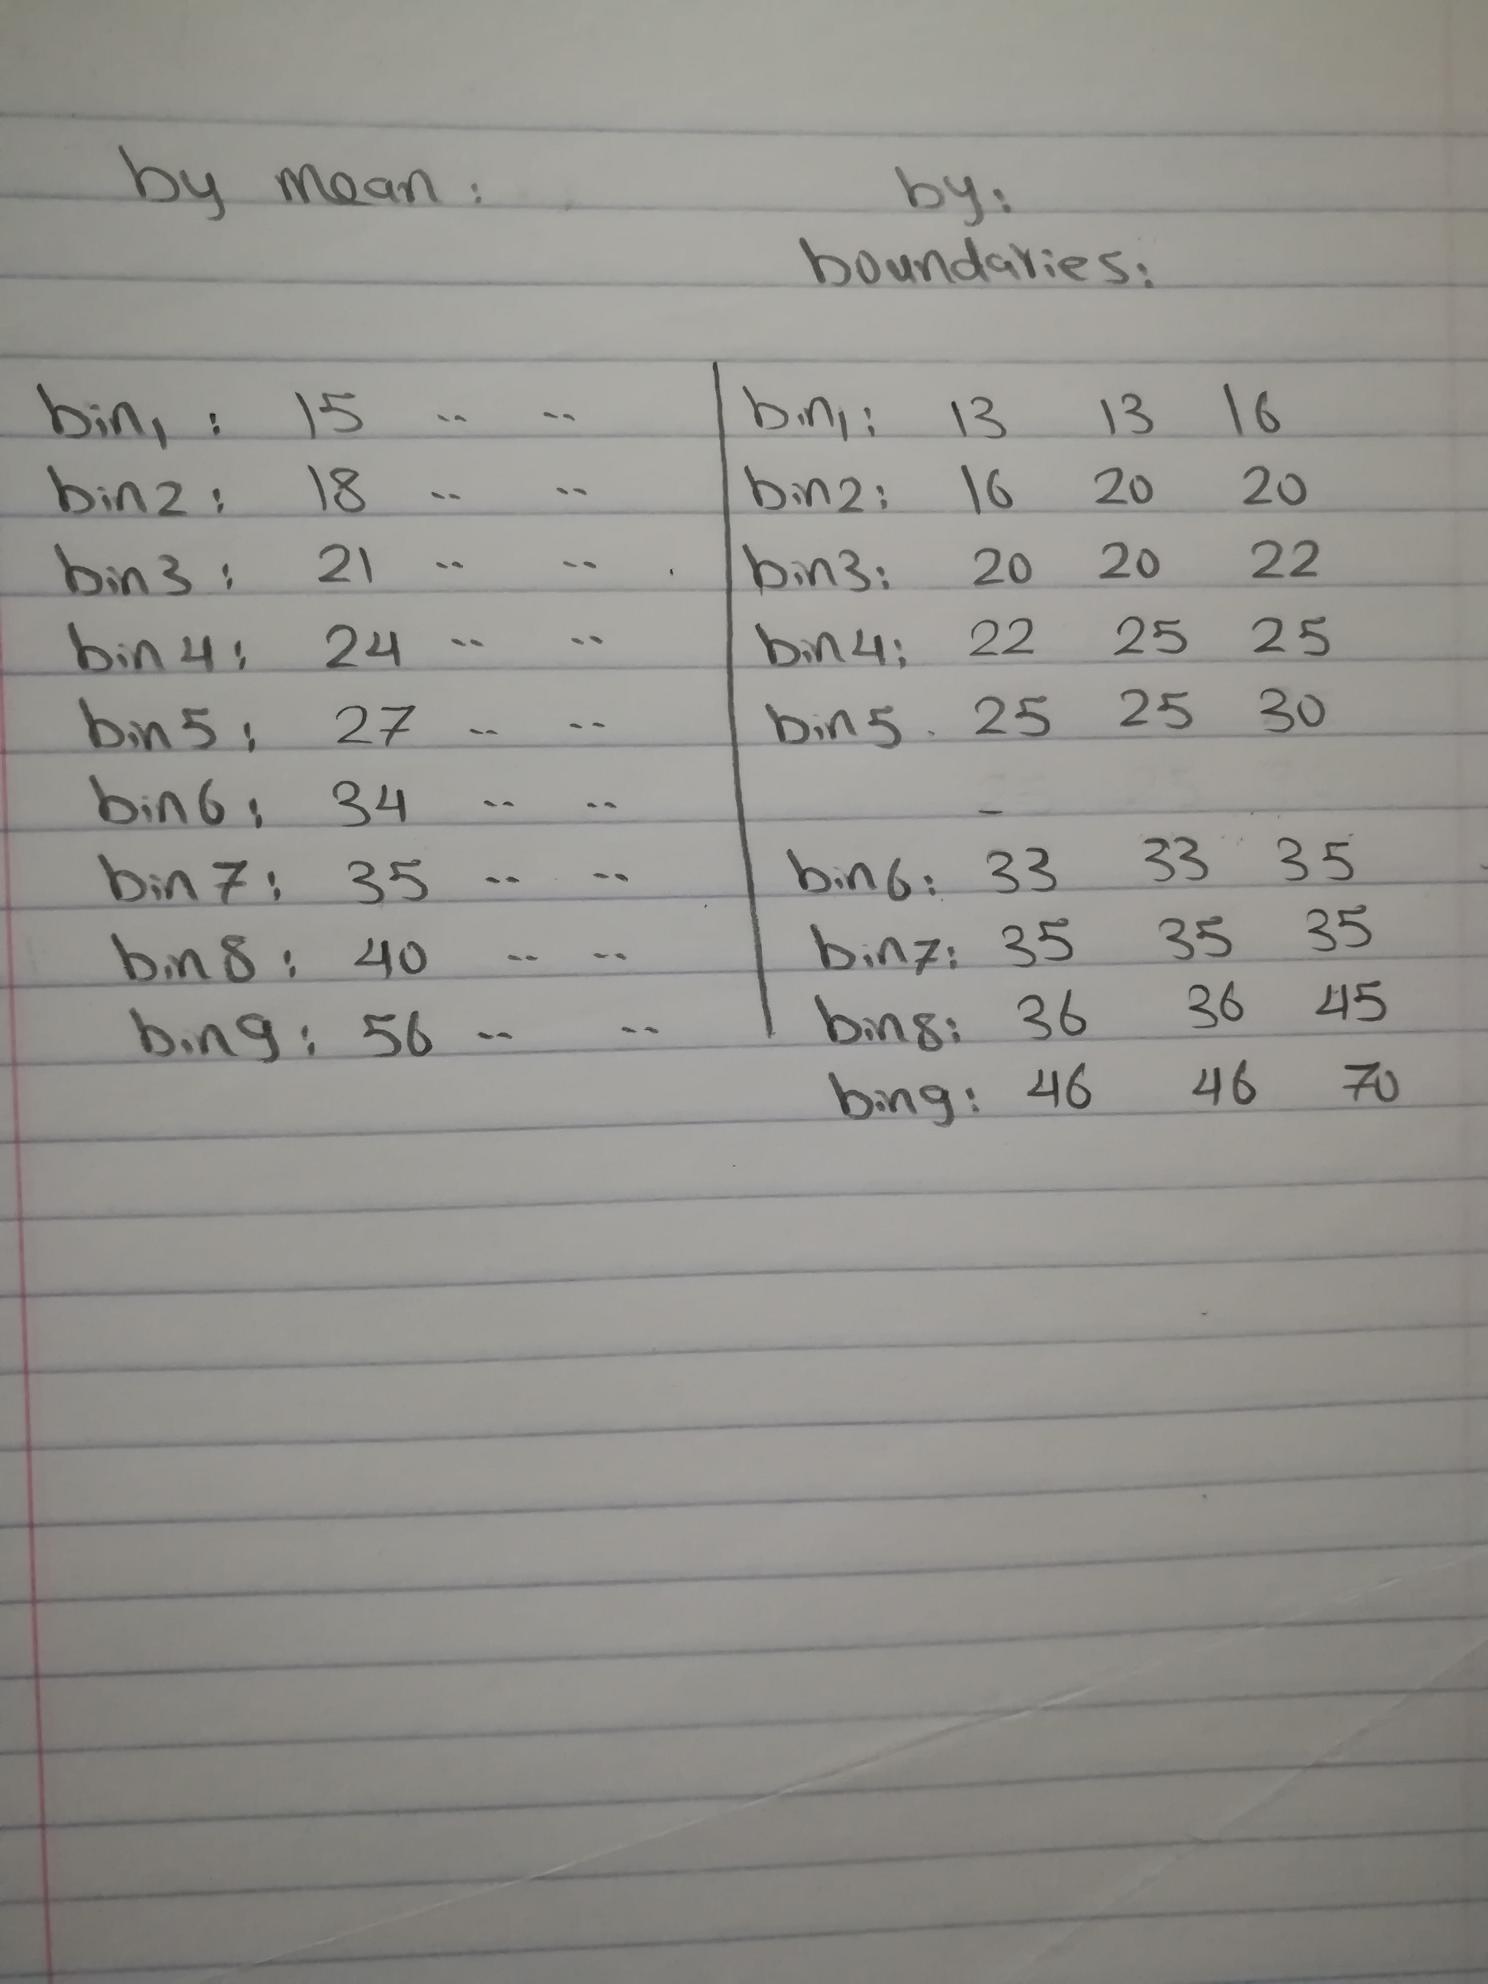 by mean:
by:
boundaries:
bin1: 15 -- --
bin2: 18 -- --
bin3: 21 -- --
bin4: 24 -- --
bin5: 27 -- --
bin6: 34 -- --
bin7: 35 -- --
bin8: 40 -- --
bin9: 56 -- --
bin1: 13 13 16
bin2: 16 20 20
bin3: 20 20 22
bin4: 22 25 25
bin5. 25 25 30
bin6: 33 33 35
bin7: 35 35 35
bin8: 36 36 45
bin9: 46 46 70